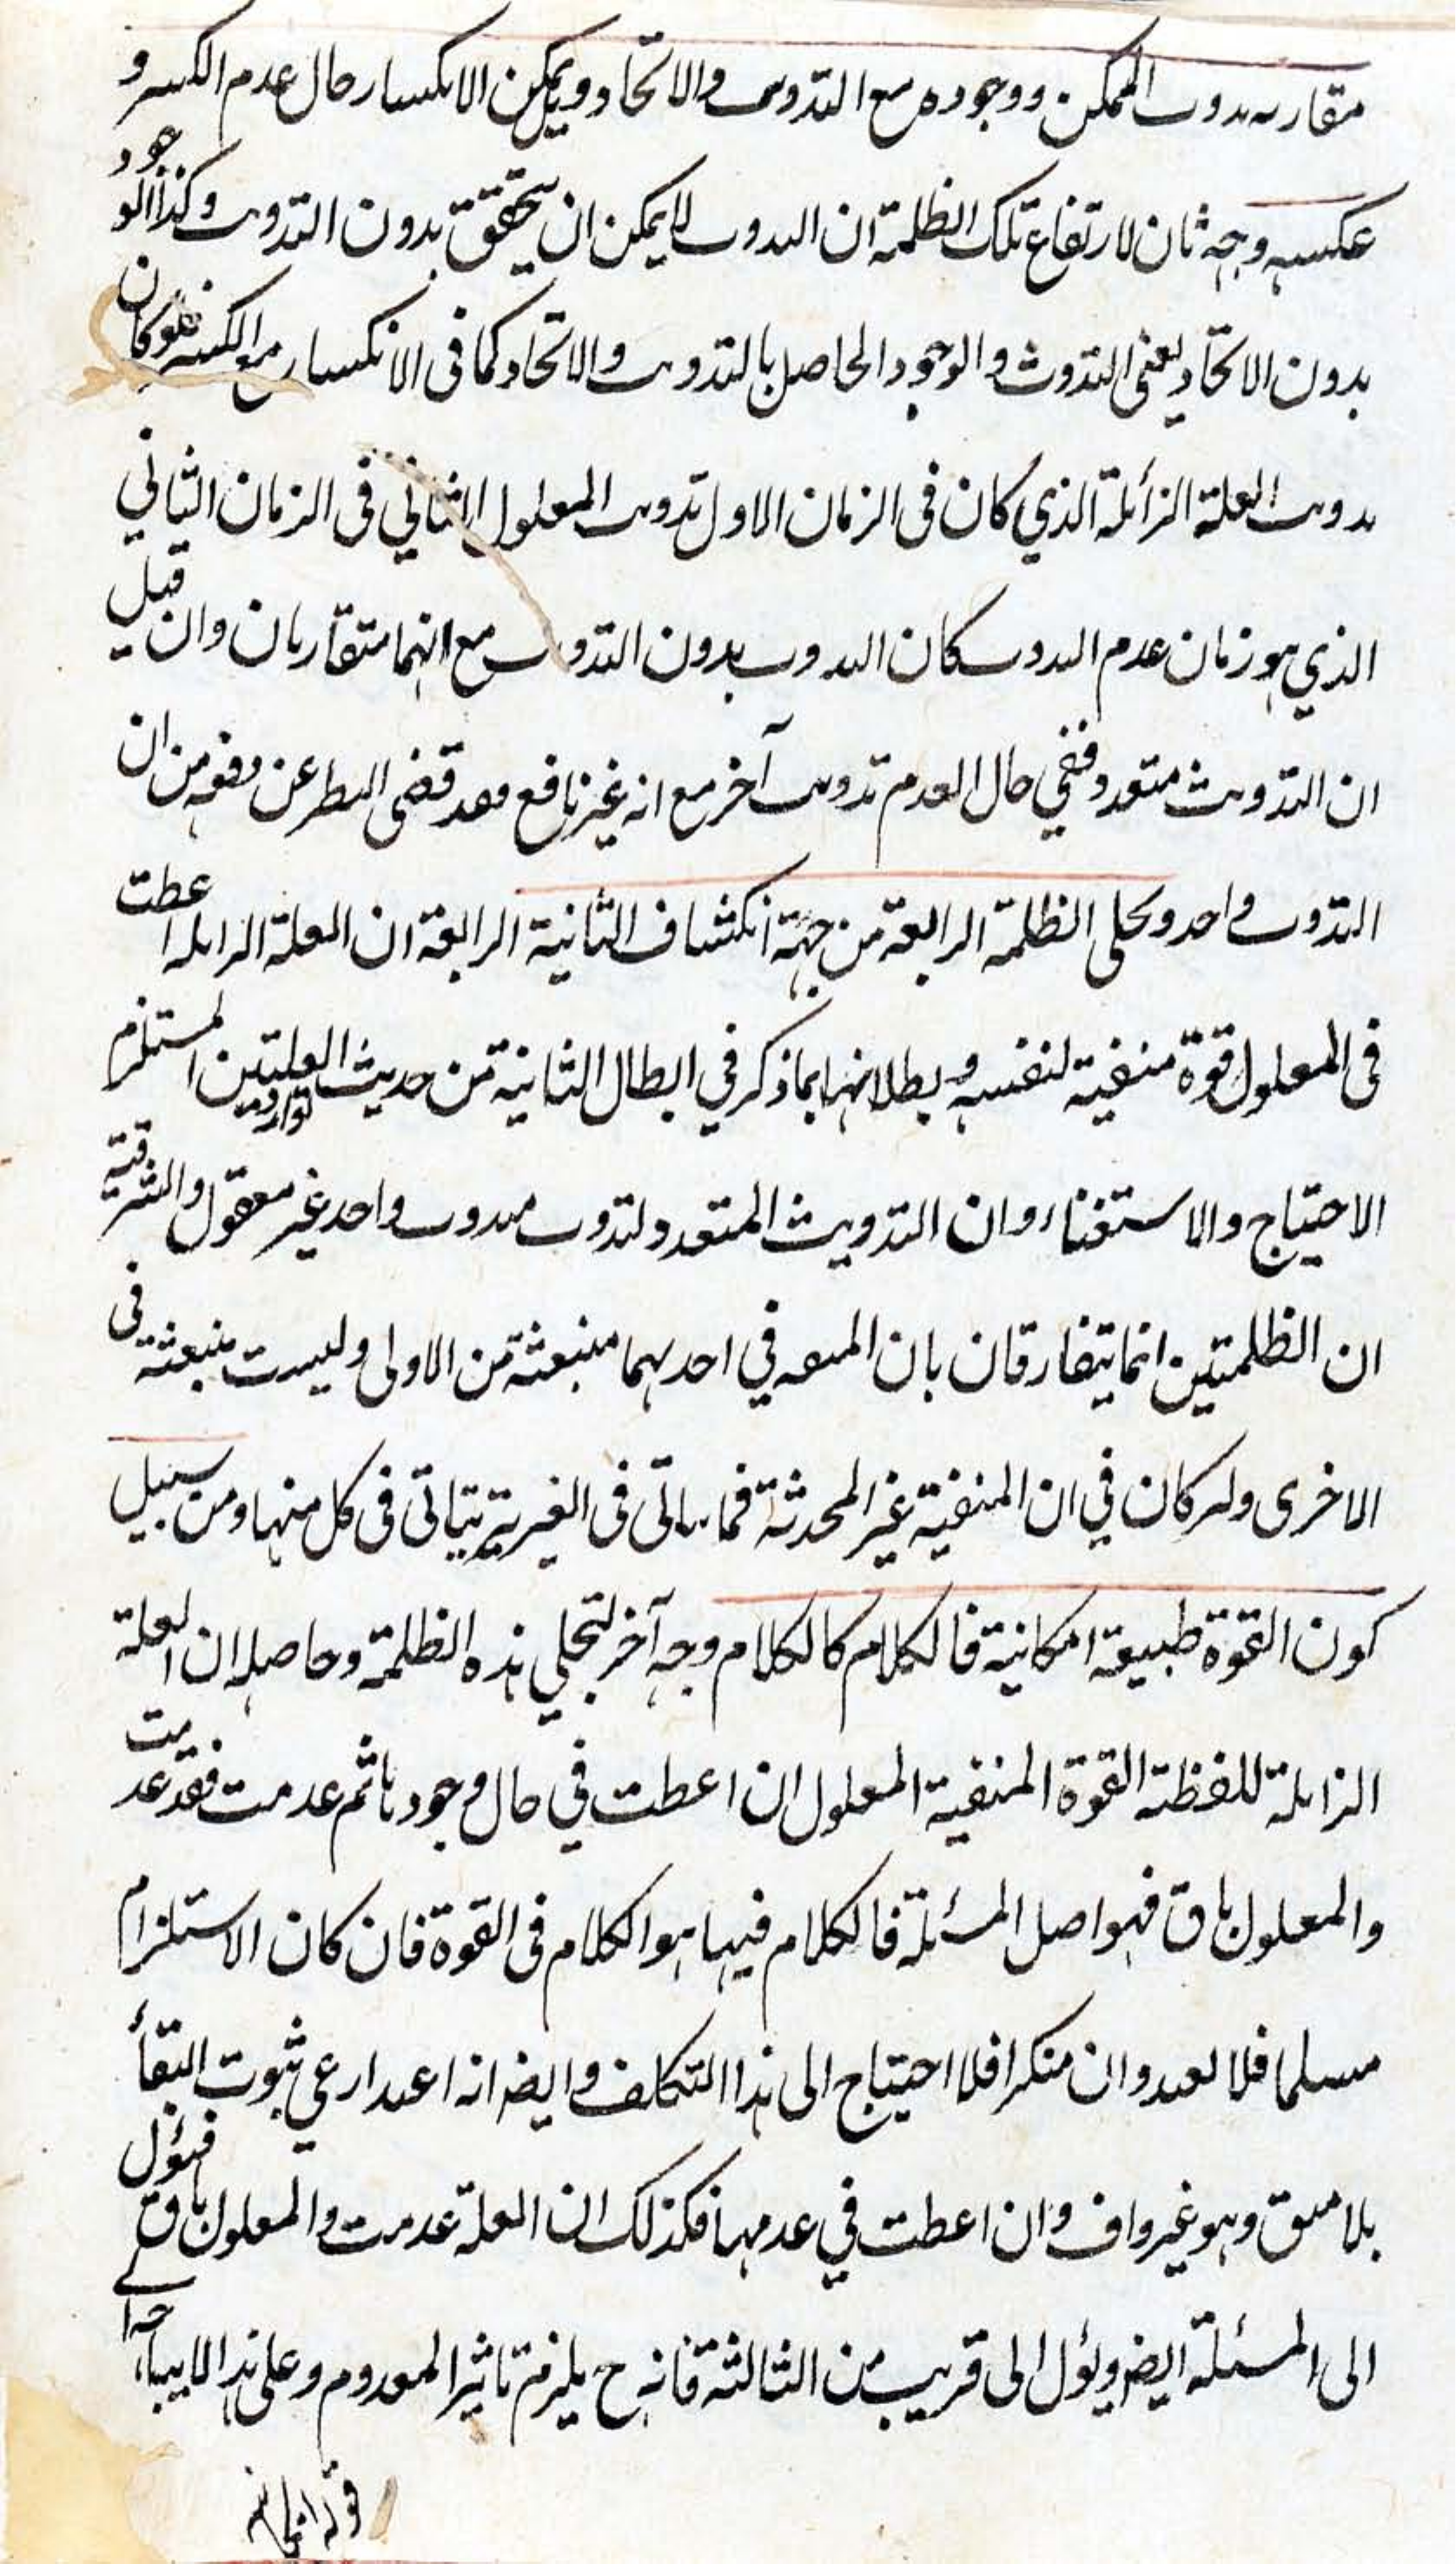 مقارنه بدون الممكن ووجوده مع التذوت والاتحاد ويمكن الانكسار حال عدم الكسر و
عكسه وجه ثان لارتفاع تلك الظلمة ان التذوت لا يمكن ان يتحقق بدون التذويت وكذا الوجود
بدون الاتحاد يعني التذوت والوجود الحاصل بالتذويت والاتحاد كما في الانكسار مع الكسر فلو كان
تذويت العلة الزائلة الذي كان في الزمان الاول تذويت المعلول الثاني في الزمان الثاني
الذي هو زمان عدم التذويت كان التذوت بدون التذويت مع انهما متقاربان وان قيل
ان التذويت متعدد ففي حال العدم تذويت آخر مع انه غير نافع وقد قضى الوطر عن دفعه من ان
التذوت واحد وتجلى الظلمة الرابعة من جهة انكشاف الثانية الرابعة ان العلة الزايلة اعطت
في المعلول قوة منفية لنفسه وبطلانها بما ذكر في ابطال الثانية من حديث توارد العلتين المستلزم
الاحتياج والاستغناء وان التذويت المتعدد لتذوت متذوت واحد غير معقول والتفرقة
ان الظلمتين انما يتفارقان بان المبقية في احديهما منبعثة من الاولى وليست منبعثة في
الاخرى ولو كان في ان المنفية غير المحدثة فما يتأتى في الغيرية يتاتى في كل منها ومن سبيل
كون القوة طبيعة امكانية فالكلام كالكلام وجه آخر لتجلي هذه الظلمة وحاصله ان العلة
الزايلة للفظة القوة المنفية المعلول ان اعطت في حال وجودها ثم عدمت فقد عدمت
والمعلول باق فهو اصل المسئلة فالكلام فيها هو الكلام في القوة فان كان الاستلزام
مسلما فلا تعدد وان منكرا فلا احتياج الى هذا التكلف وايضا انه اعتذار عن ثبوت البقاء
بلا مبق وهو غير واف وان اعطت في عدمها فكذلك ان العلة عدمت والمعلول باق فيؤل
الى المسئلة ايضا ويؤل الى قريب من الثالثة فانه ح يلزم تاثير المعدوم وعلى هذا لا يبا